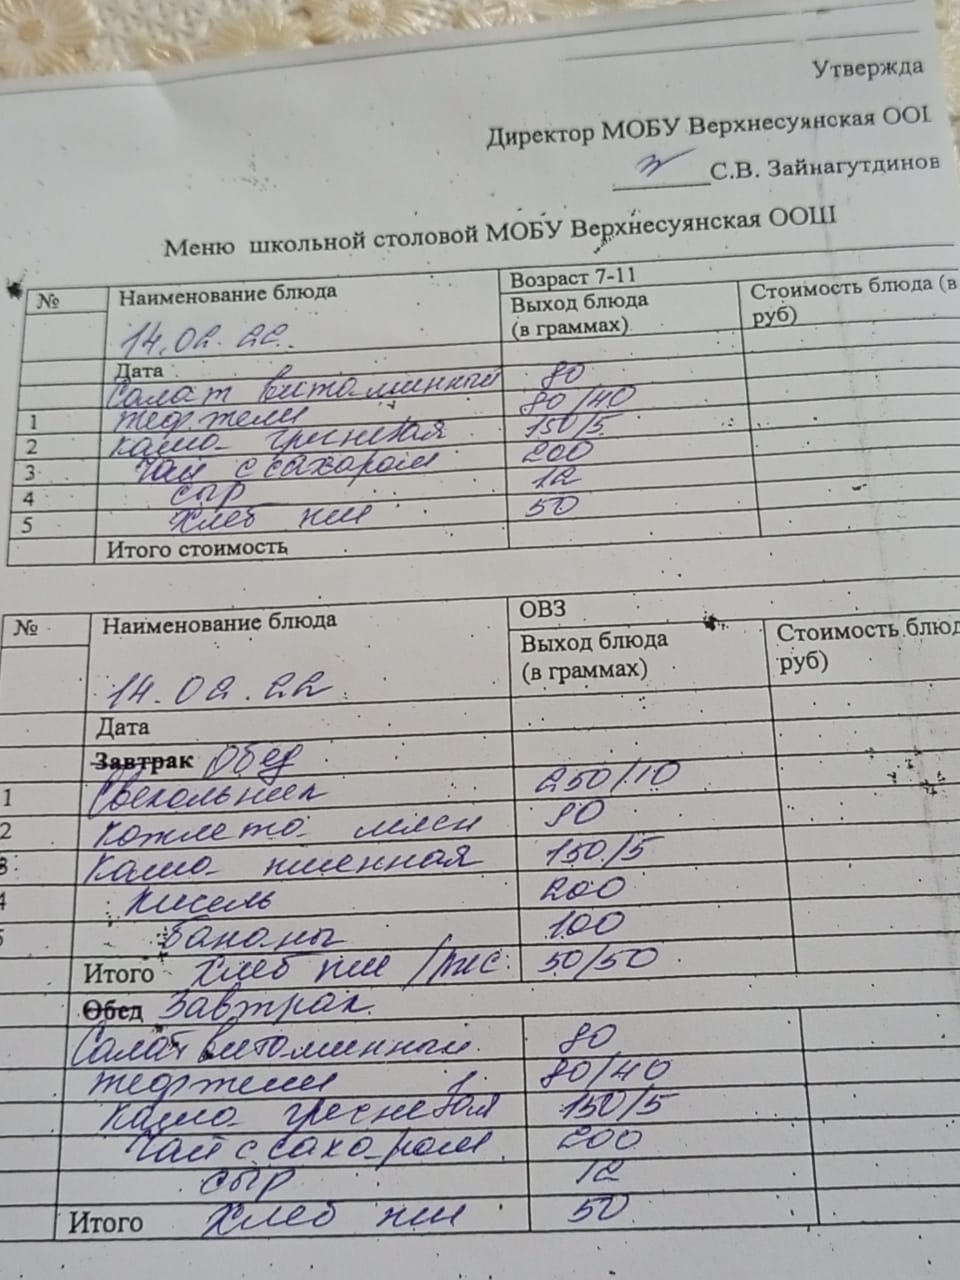 Утвержда
Директор МОБУ Верхнесуянская ООШ
С.В. Зайнагутдинов
Меню школьной столовой МОБУ Верхнесуянская ООШ
№ Наименование блюда Возраст 7-11
Выход блюда (в граммах) Стоимость блюда (в руб)
14.02.22.
Дата
Салат витаминный 80
1 тефтели 80/40
2 каша гречневая 150/5
3 Чай с сахаром 200
4 сыр 12
5 Хлеб пш 50
Итого стоимость
№ Наименование блюда ОВЗ
Выход блюда (в граммах) Стоимость блюд руб)
14.02.22
Дата
Завтрак Обед
1 Свекольник 250/10
2 котлета мясн 90
3 Каша пшенная 150/5
4 Кисель 200
5 Бананы 100
Итого Хлеб пш/рж 50/50
Обед Завтрак.
Салат витаминный 80
тефтели 80/40
Каша гречневая 150/5
Чай с сахаром 200
сыр 12
Итого Хлеб пш 50